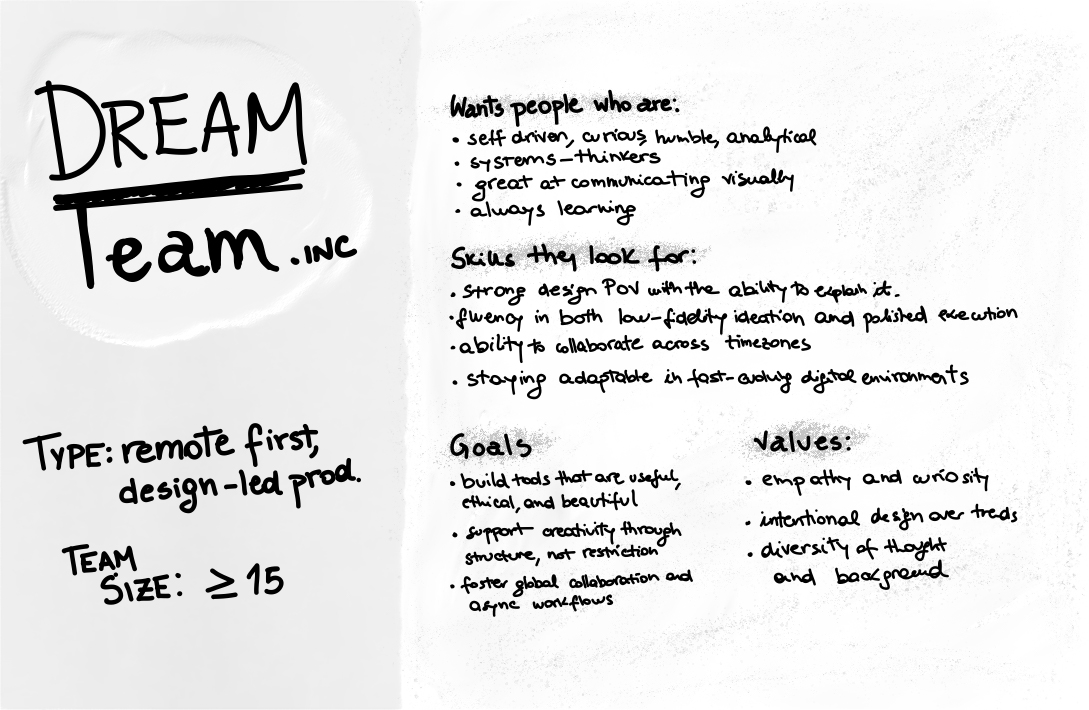 DREAM
Team.INC
TYPE: remote first,
design-led prod.
TEAM
SIZE: ≥ 15
Wants people who are:
• self driven, curious, humble, analytical
• systems-thinkers
• great at communicating visually
• always learning
Skills they look for:
• strong design POV with the ability to explain it.
• fluency in both low-fidelity ideation and polished execution
• ability to collaborate across timezones
• staying adaptable in fast-evolving digital environments
Goals
• build tools that are useful,
ethical, and beautiful
• support creativity through
structure, not restriction
• foster global collaboration and
async workflows
Values:
• empathy and curiosity
• intentional design over treds
• diversity of thought
and background